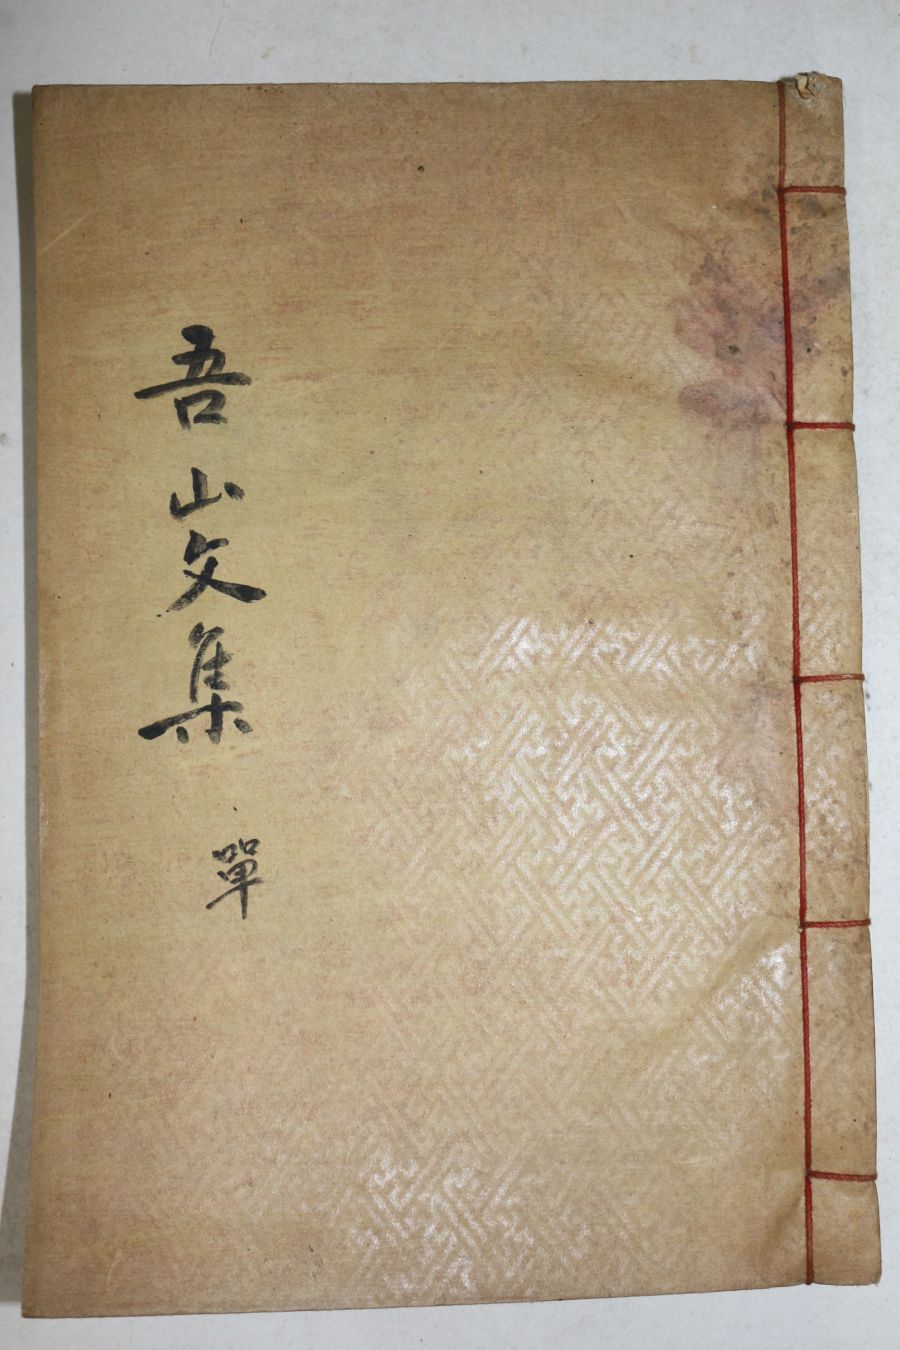 吾山文集
單